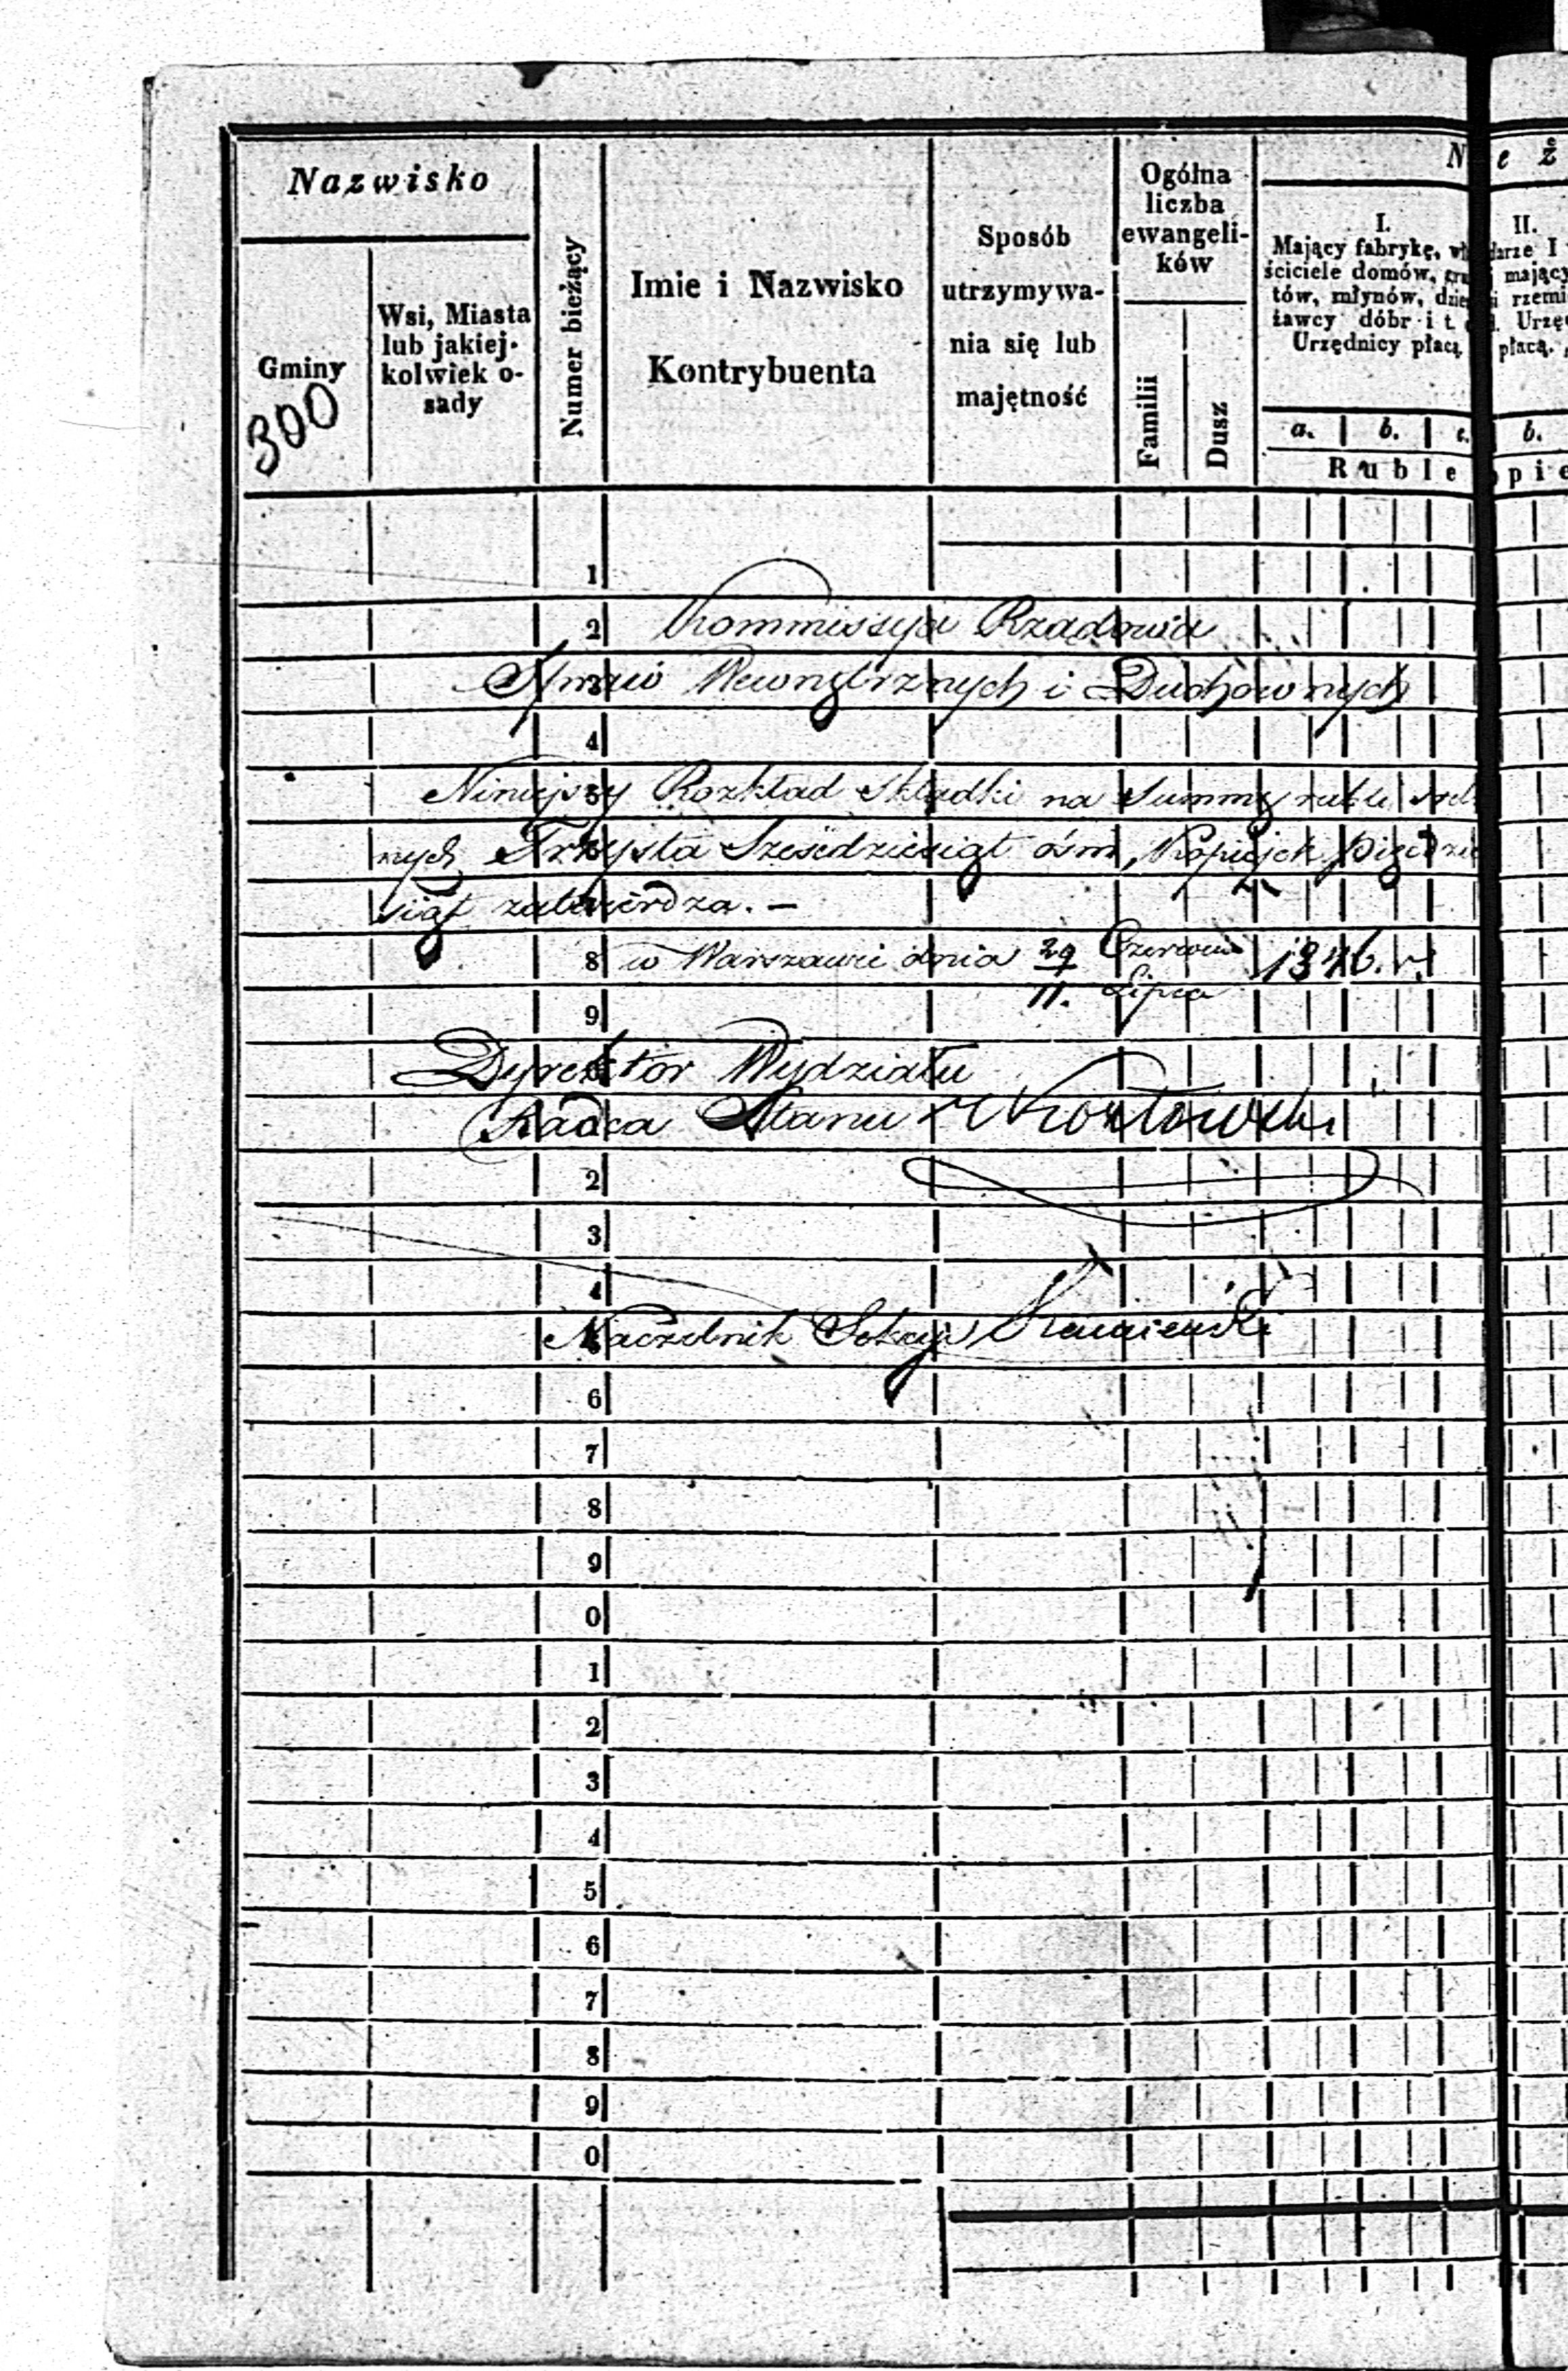 Nazwisko
Gminy
300
Wsi, Miasta
lub jakiej-
kolwiek o-
sady
Numer bieżący
Imie i Nazwisko
Kontrybuenta
Sposób
utrzymywa-
nia się lub
majętność
Ogólna
liczba
ewangeli-
ków
Familii
Dusz
N e ż
I.
Mający fabrykę,
ściciele domów,
tów, młynów,
żawcy dóbr i t.
Urzędnicy płacą
a. b. c.
Ruble
II.
I
mający
rzemi
Urzę
płacą.
b.
opie
1
2
Kommissya Rządowa
Spraw Wewnętrznych i Duchownych
4
Niniejszy Rozkład Składki na Summę rubli sreb
nych Trzysta Sześćdziesiąt ośm, Kopiejek pięćdzie
siąt zatwierdza. —
8 w Warszawie dnia 29/11. Czerwca/Lipca 1846. r.
9
Dyrektor Wydziału
Radca Stanu
2
3
4
Naczelnik Sekcyi
6
7
8
9
0
1
2
3
4
5
6
7
8
9
0